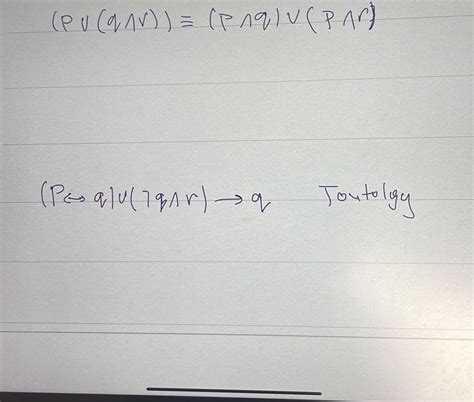 (P ∪ (q ∧ r)) ≡ (P ∧ q) ∪ (P ∧ r)
(P ↔ q) ∪ (¬q ∧ r) → q Toutolgy